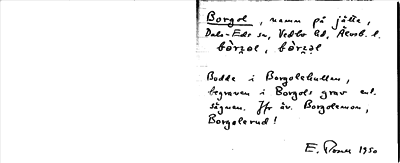 Borgol, namn på jätte,
Dals-Eds sn, Vedbo hd, Älvsb. l.
Bodde i Borgolehullan,
begraven i Borgols grav enl.
sägnen. Jfr äv. Borgolemon,
Borgolerud!
E. 1950